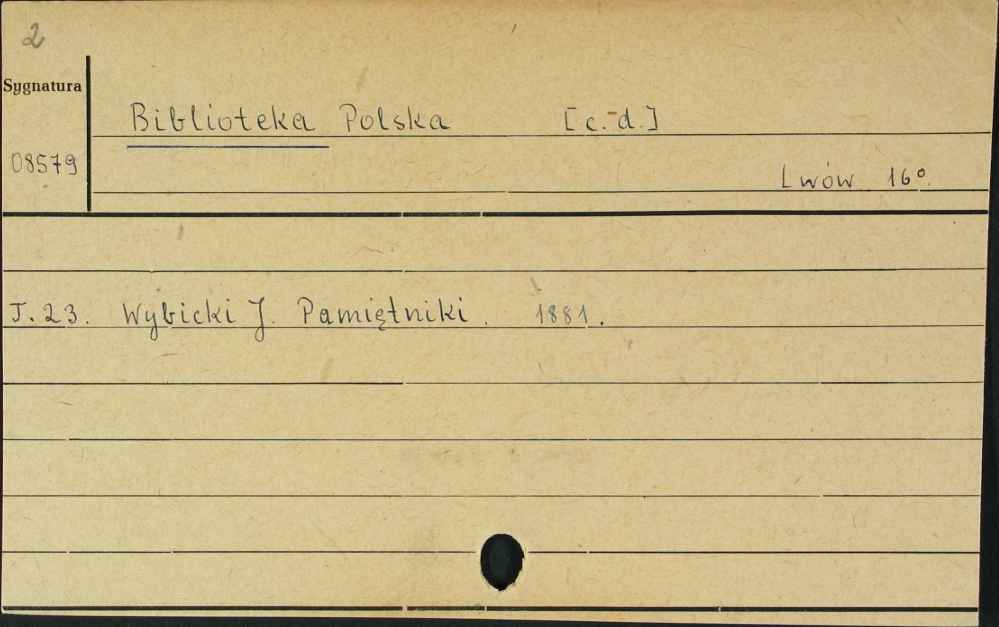 2
Sygnatura
Biblioteka Polska [c. d.]
08579
Lwów 16°.
T. 23. Wybicki J. Pamiętniki. 1881.